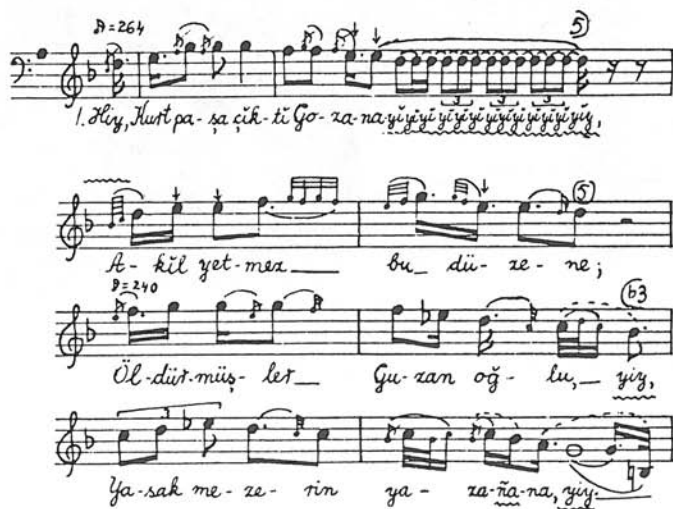 ♪=264 5
1. Hiy, Kurt pa-şa çĭk-tĭ Go-za-na-yĭyĭyĭ yĭyĭyĭ yĭyĭyĭ yĭyĭyĭ yĭy,
5
A-kĭl yet-mez bu dü-ze-ne;
♪=240 b3
Öl-dür-müş-ler Gu-zan oğ-lu, yiy,
3
Ya-sak me-ze-rin ya-za-ña-na, yiy.